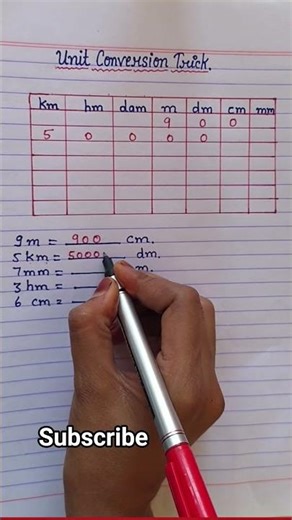 Unit Conversion Trick.
km hm dam m dm cm mm
9 0 0
5 0 0 0 0
9m = 900 cm.
5km = 5000 dm.
7mm = m.
3hm =
6 cm =
Subscribe